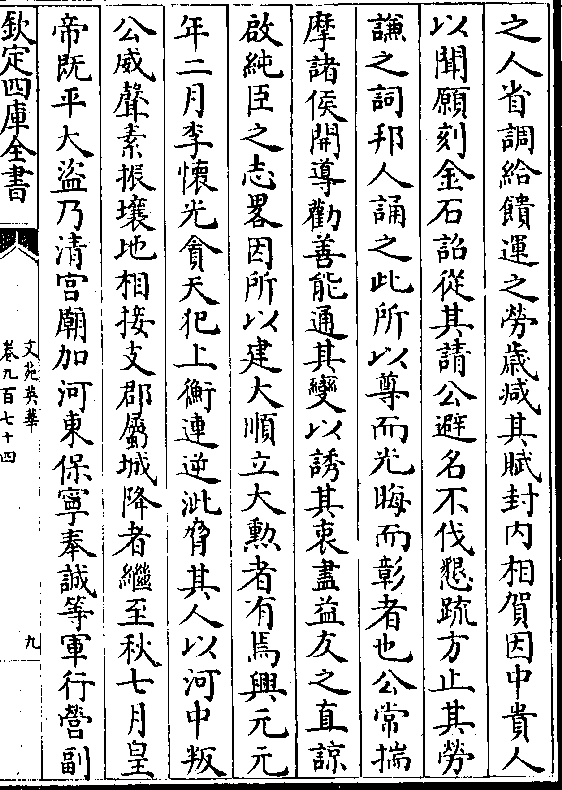 之人省調給饋運之勞歲減其賦封内相賀因中貴人
以聞願刻金石詔從其請公避名不伐懇疏方止其勞
謙之詞邦人誦之此所以尊而光晦而彰者也公常揣
摩諸侯開導勸善能通其變以誘其衷盡益友之直諒
啟純臣之志畧因所以建大順立大勲者有焉興元元
年二月李懷光貪天犯上衡連逆泚脅其人以河中叛
公威聲素振壤地相接支郡屬城降者繼至秋七月皇
帝既平大盜乃清宫廟加河東保寧奉誠等軍行營副
欽定四庫全書
文苑英華
卷九百七十四
九